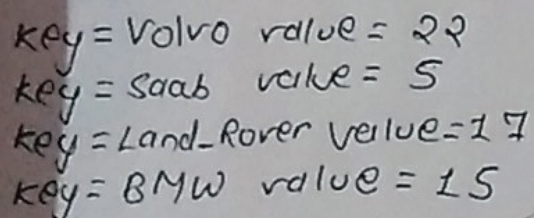 key = Volvo value = 22
key = Saab value = 5
key = Land_Rover value = 17
key = BMW value = 15